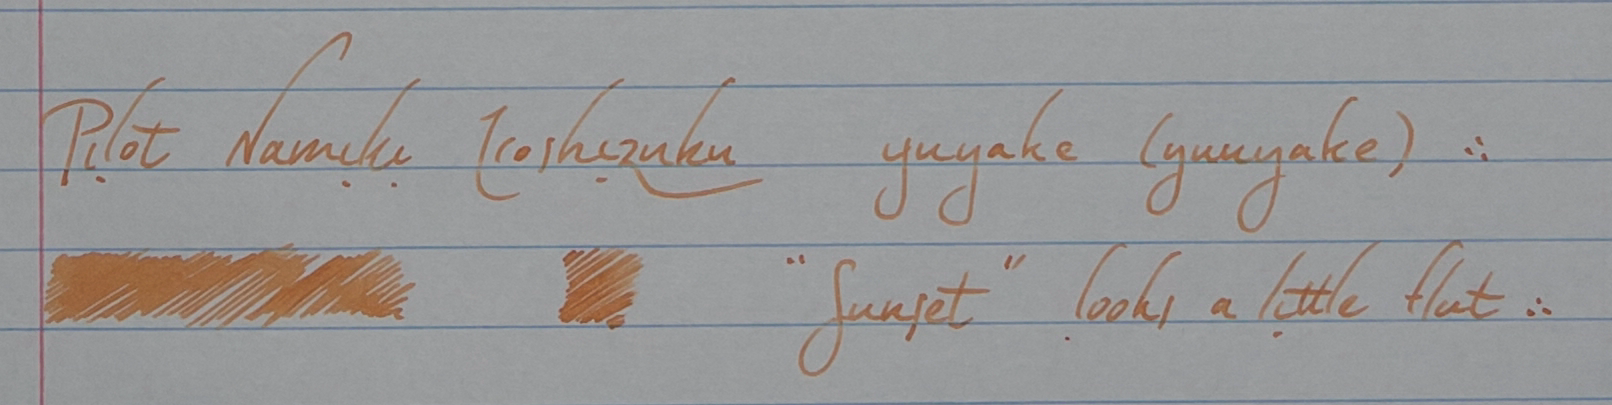 Pilot Namiki Iroshizuku yuyake (yuuyake) ∴
"Sunset" looks a little flat ∴